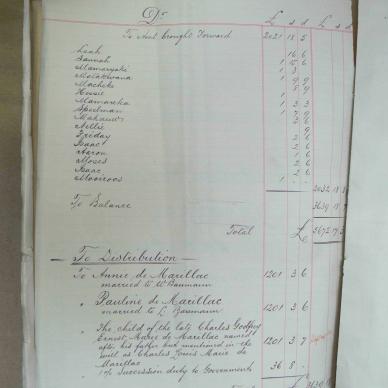 Dr £ s d £ s d
To Amt brought Forward 2021 18 5
Leah 16 6
Hannah 1 15 6
Mamaryaki 3
Molakwana 9 9
Machike 8 9
Hessie 1
Mamareka 1 3 3
Speelman 7 9
Makauw 3 6
Nellie 9
Friday 2 6
Isaac 2 6
Aaron 1 6
Moses 2 6
Isaac 2 6
Mooiroos 1 2032 18
To Balance 3639 18
Total £ 5672
To Distribution
To Annie de Marillac 1201 3 6
married to W Baumann
" Pauline de Marillac 1201 3 6
married to L Baumann
" The child of the late Charles Godfrey
Ernest Marie de Marillac named
after his father but mentioned in the 1201 3 7
will as Charles Louis Marie de
Marillac
" 1% Succession duty to Government 36 8
Total £